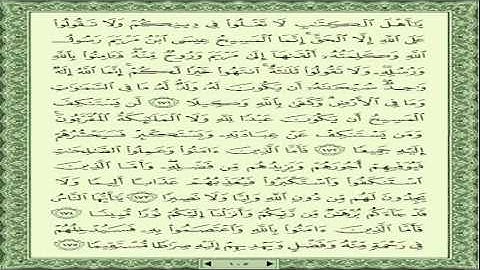 يَٰٓأَهْلَ ٱلْكِتَٰبِ لَا تَغْلُوا۟ فِى دِينِكُمْ وَلَا تَقُولُوا۟
عَلَى ٱللَّهِ إِلَّا ٱلْحَقَّ إِنَّمَا ٱلْمَسِيحُ عِيسَى ٱبْنُ مَرْيَمَ رَسُولُ
ٱللَّهِ وَكَلِمَتُهُۥٓ أَلْقَىٰهَآ إِلَىٰ مَرْيَمَ وَرُوحٌ مِّنْهُ فَـَٔامِنُوا۟ بِٱللَّهِ
وَرُسُلِهِۦ وَلَا تَقُولُوا۟ ثَلَٰثَةٌ ٱنتَهُوا۟ خَيْرًا لَّكُمْ إِنَّمَا ٱللَّهُ إِلَٰهٌ
وَٰحِدٌ سُبْحَٰنَهُۥٓ أَن يَكُونَ لَهُۥ وَلَدٌ لَّهُۥ مَا فِى ٱلسَّمَٰوَٰتِ
وَمَا فِى ٱلْأَرْضِ وَكَفَىٰ بِٱللَّهِ وَكِيلًا ١٧١ لَّن يَسْتَنكِفَ
ٱلْمَسِيحُ أَن يَكُونَ عَبْدًا لِّلَّهِ وَلَا ٱلْمَلَٰٓئِكَةُ ٱلْمُقَرَّبُونَ
وَمَن يَسْتَنكِفْ عَنْ عِبَادَتِهِۦ وَيَسْتَكْبِرْ فَسَيَحْشُرُهُمْ
إِلَيْهِ جَمِيعًا ١٧٢ فَأَمَّا ٱلَّذِينَ ءَامَنُوا۟ وَعَمِلُوا۟ ٱلصَّٰلِحَٰتِ
فَيُوَفِّيهِمْ أُجُورَهُمْ وَيَزِيدُهُم مِّن فَضْلِهِۦ وَأَمَّا ٱلَّذِينَ
ٱسْتَنكَفُوا۟ وَٱسْتَكْبَرُوا۟ فَيُعَذِّبُهُمْ عَذَابًا أَلِيمًا وَلَا
يَجِدُونَ لَهُم مِّن دُونِ ٱللَّهِ وَلِيًّا وَلَا نَصِيرًا ١٧٣ يَٰٓأَيُّهَا ٱلنَّاسُ
قَدْ جَآءَكُم بُرْهَٰنٌ مِّن رَّبِّكُمْ وَأَنزَلْنَآ إِلَيْكُمْ نُورًا مُّبِينًا ١٧٤
فَأَمَّا ٱلَّذِينَ ءَامَنُوا۟ بِٱللَّهِ وَٱعْتَصَمُوا۟ بِهِۦ فَسَيُدْخِلُهُمْ
فِى رَحْمَةٍ مِّنْهُ وَفَضْلٍ وَيَهْدِيهِمْ إِلَيْهِ صِرَٰطًا مُّسْتَقِيمًا ١٧٥